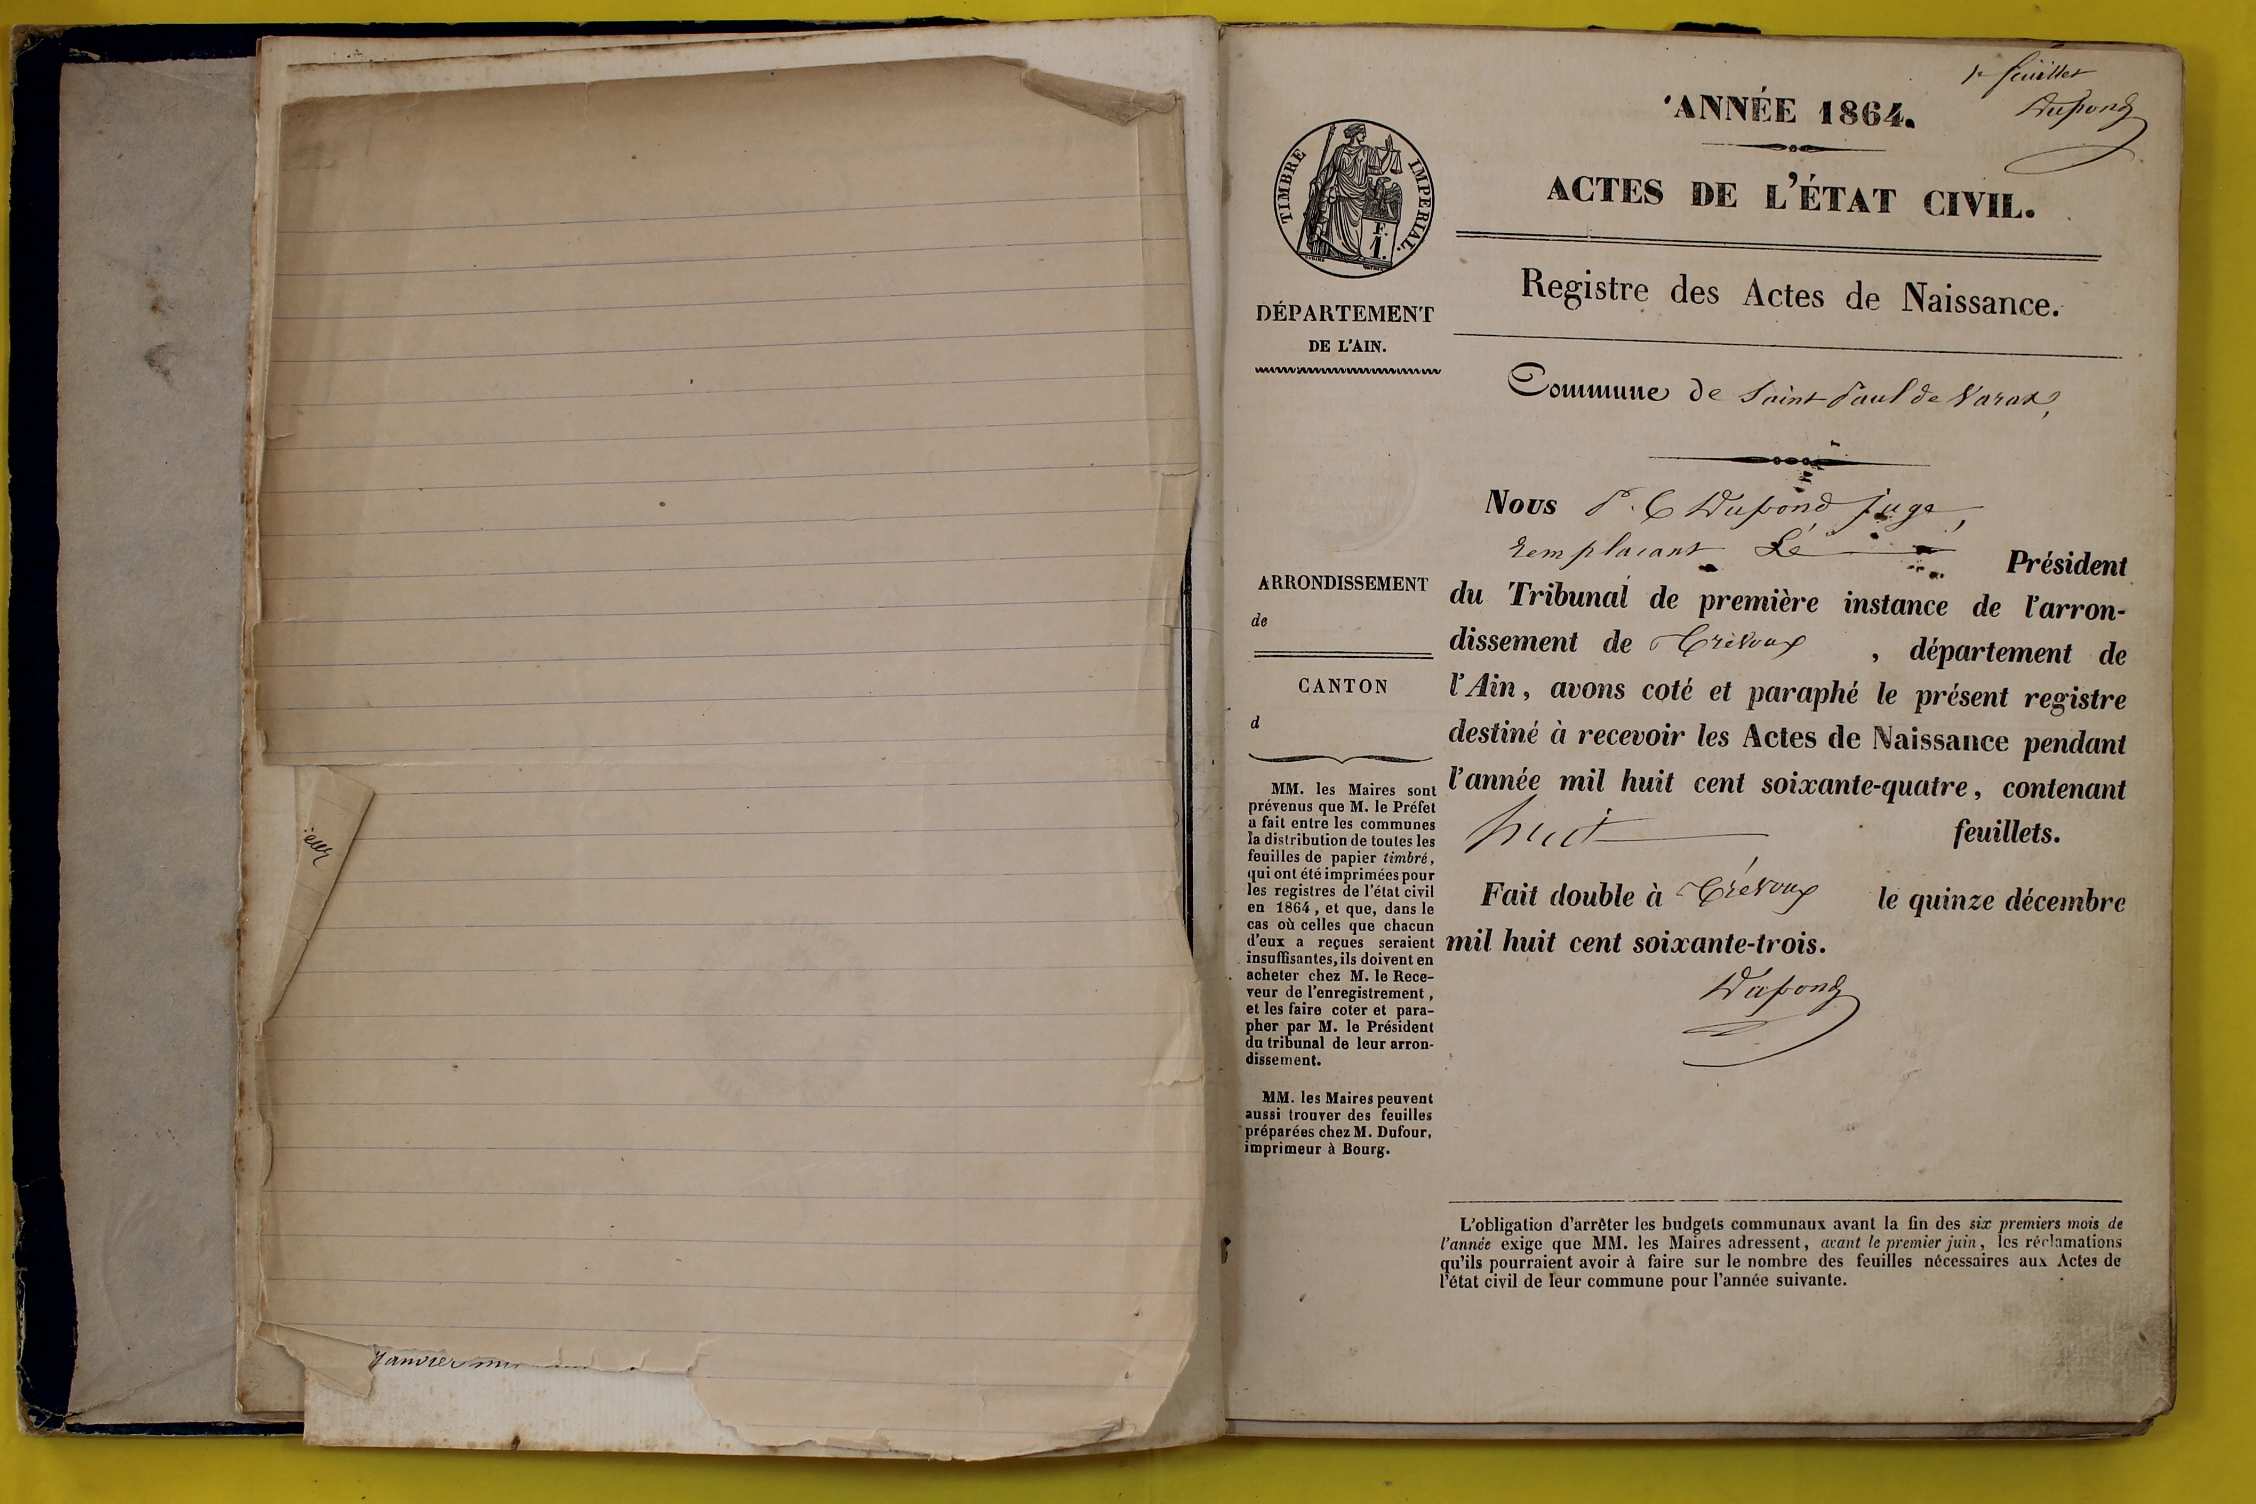 Janvier
1er feuillet
Dupond
ANNÉE 1864.
ACTES DE L'ÉTAT CIVIL.
TIMBRE IMPÉRIAL.
F.
1.
Registre des Actes de Naissance.
DÉPARTEMENT
DE L'AIN.
Commune de Saint Paul de Varax,
Nous P. C Dupond juge,
remplacant Le Président
du Tribunal de première instance de l'arron-
dissement de Trévoux , département de
l'Ain, avons coté et paraphé le présent registre
destiné à recevoir les Actes de Naissance pendant
l'année mil huit cent soixante-quatre, contenant
huit feuillets.
Fait double à Trévoux le quinze décembre
mil huit cent soixante-trois.
Dupond
ARRONDISSEMENT
de
CANTON
d
MM. les Maires sont
prévenus que M. le Préfet
a fait entre les communes
la distribution de toutes les
feuilles de papier timbré,
qui ont été imprimées pour
les registres de l'état civil
en 1864, et que, dans le
cas où celles que chacun
d'eux a reçues seraient
insuffisantes, ils doivent en
acheter chez M. le Rece-
veur de l'enregistrement,
et les faire coter et para-
pher par M. le Président
du tribunal de leur arron-
dissement.
MM. les Maires peuvent
aussi trouver des feuilles
préparées chez M. Dufour,
imprimeur à Bourg.
L'obligation d'arrêter les budgets communaux avant la fin des six premiers mois de
l'année exige que MM. les Maires adressent, avant le premier juin, les réclamations
qu'ils pourraient avoir à faire sur le nombre des feuilles nécessaires aux Actes de
l'état civil de leur commune pour l'année suivante.